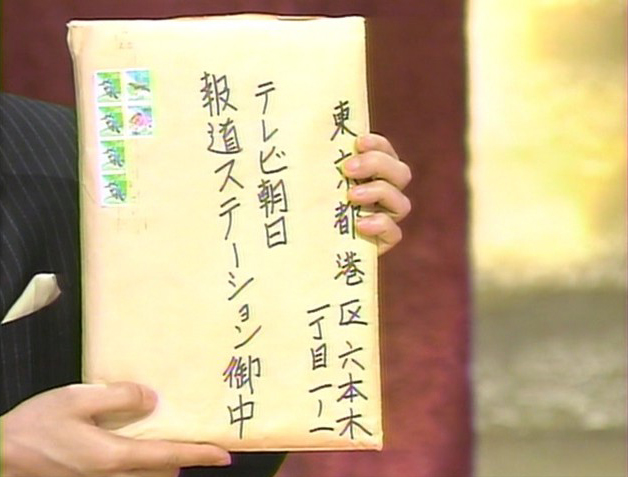 東京都港区六本木
一丁目一ー一
テレビ朝日
報道ステーション御中